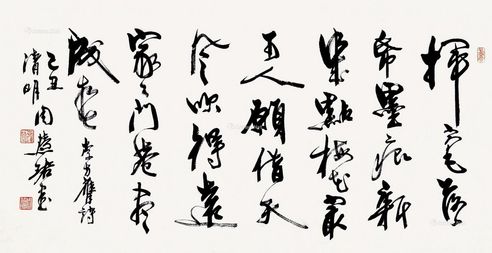 揮毫落
帋墨痕新
幾點梅花最
可人願借天
風吹得遠
家々門巷盡
成春 李方膺詩
己丑
清明周慧珺書